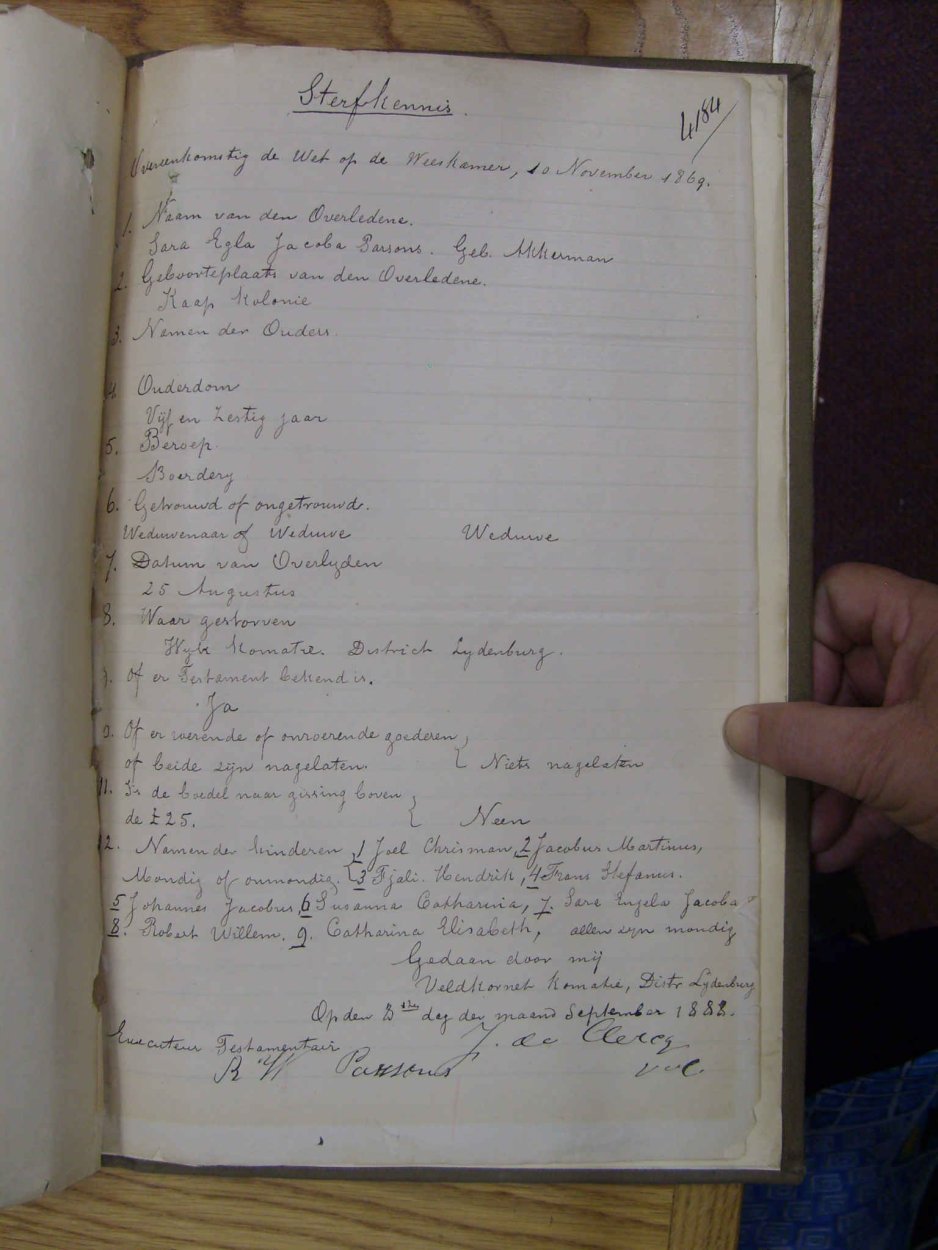 Sterfkennis.
4184
Overeenkomstig de Wet op de Weeskamer, 10 November 1869.
1. Naam van den Overledene.
Sara Egla Jacoba Parsons. Geb. Akkerman
2. Geboorteplaats van den Overledene.
Kaap Kolonie
3. Namen der Ouders.
4. Ouderdom
Vijf en Zestig jaar
5. Beroep.
Boerdery
6. Getrouwd of ongetrouwd.
Weduwenaar of Weduwe Weduwe
7. Datum van Overlyden
25 Augustus
8. Waar gestorven
Wyk Komatie. District Lydenburg.
9. Of er Testament bekend is.
Ja
Of er roerende of onroerende goederen
of beide zyn nagelaten. Niets nagelaten
11. Is de boedel naar gissing boven
de £25. Neen
12. Namen der kinderen, 1 Joel Chrisman, 2 Jacobus Martinus,
Mondig of onmondig. 3 Tjali. Hendrik, 4 Frans Stefanus.
5 Johannes Jacobus, 6 Susanna Catharina, 7. Sara Engela Jacoba
8. Robert Willem. 9. Catharina Elisabeth, allen zyn mondig
Gedaan door mij
Veldkornet Komatie, Distr Lydenburg
Op den dag der maand September 1888.
Executeur Testamentair J. de Clercq
R W Parsons